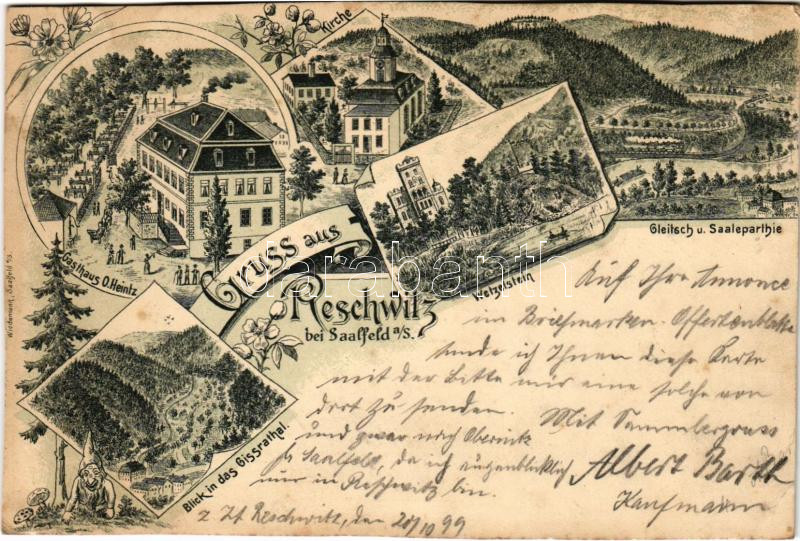 Kirche
Gasthaus O. Heintz
Gruss aus
Reschwitz
bei Saalfeld a/S.
Wetzelstein
Gleitsch u. Saaleparthie
Blick in das Gissrathal.
Saalfeld a/S.
darabanth
Auf Ihre Annonce
im Briefmarken-Offertenblatte
sende ich Ihnen diese Karte
mit der Bitte mir eine solche von
dort zu senden. Mit Sammlergruss
und zwar nach Obernitz
b/ Saalfeld, da ich augenblicklich
nur in Reschwitz bin.
Albert Barth
Kaufmann
z. Zt. Reschwitz, den 20/10 99